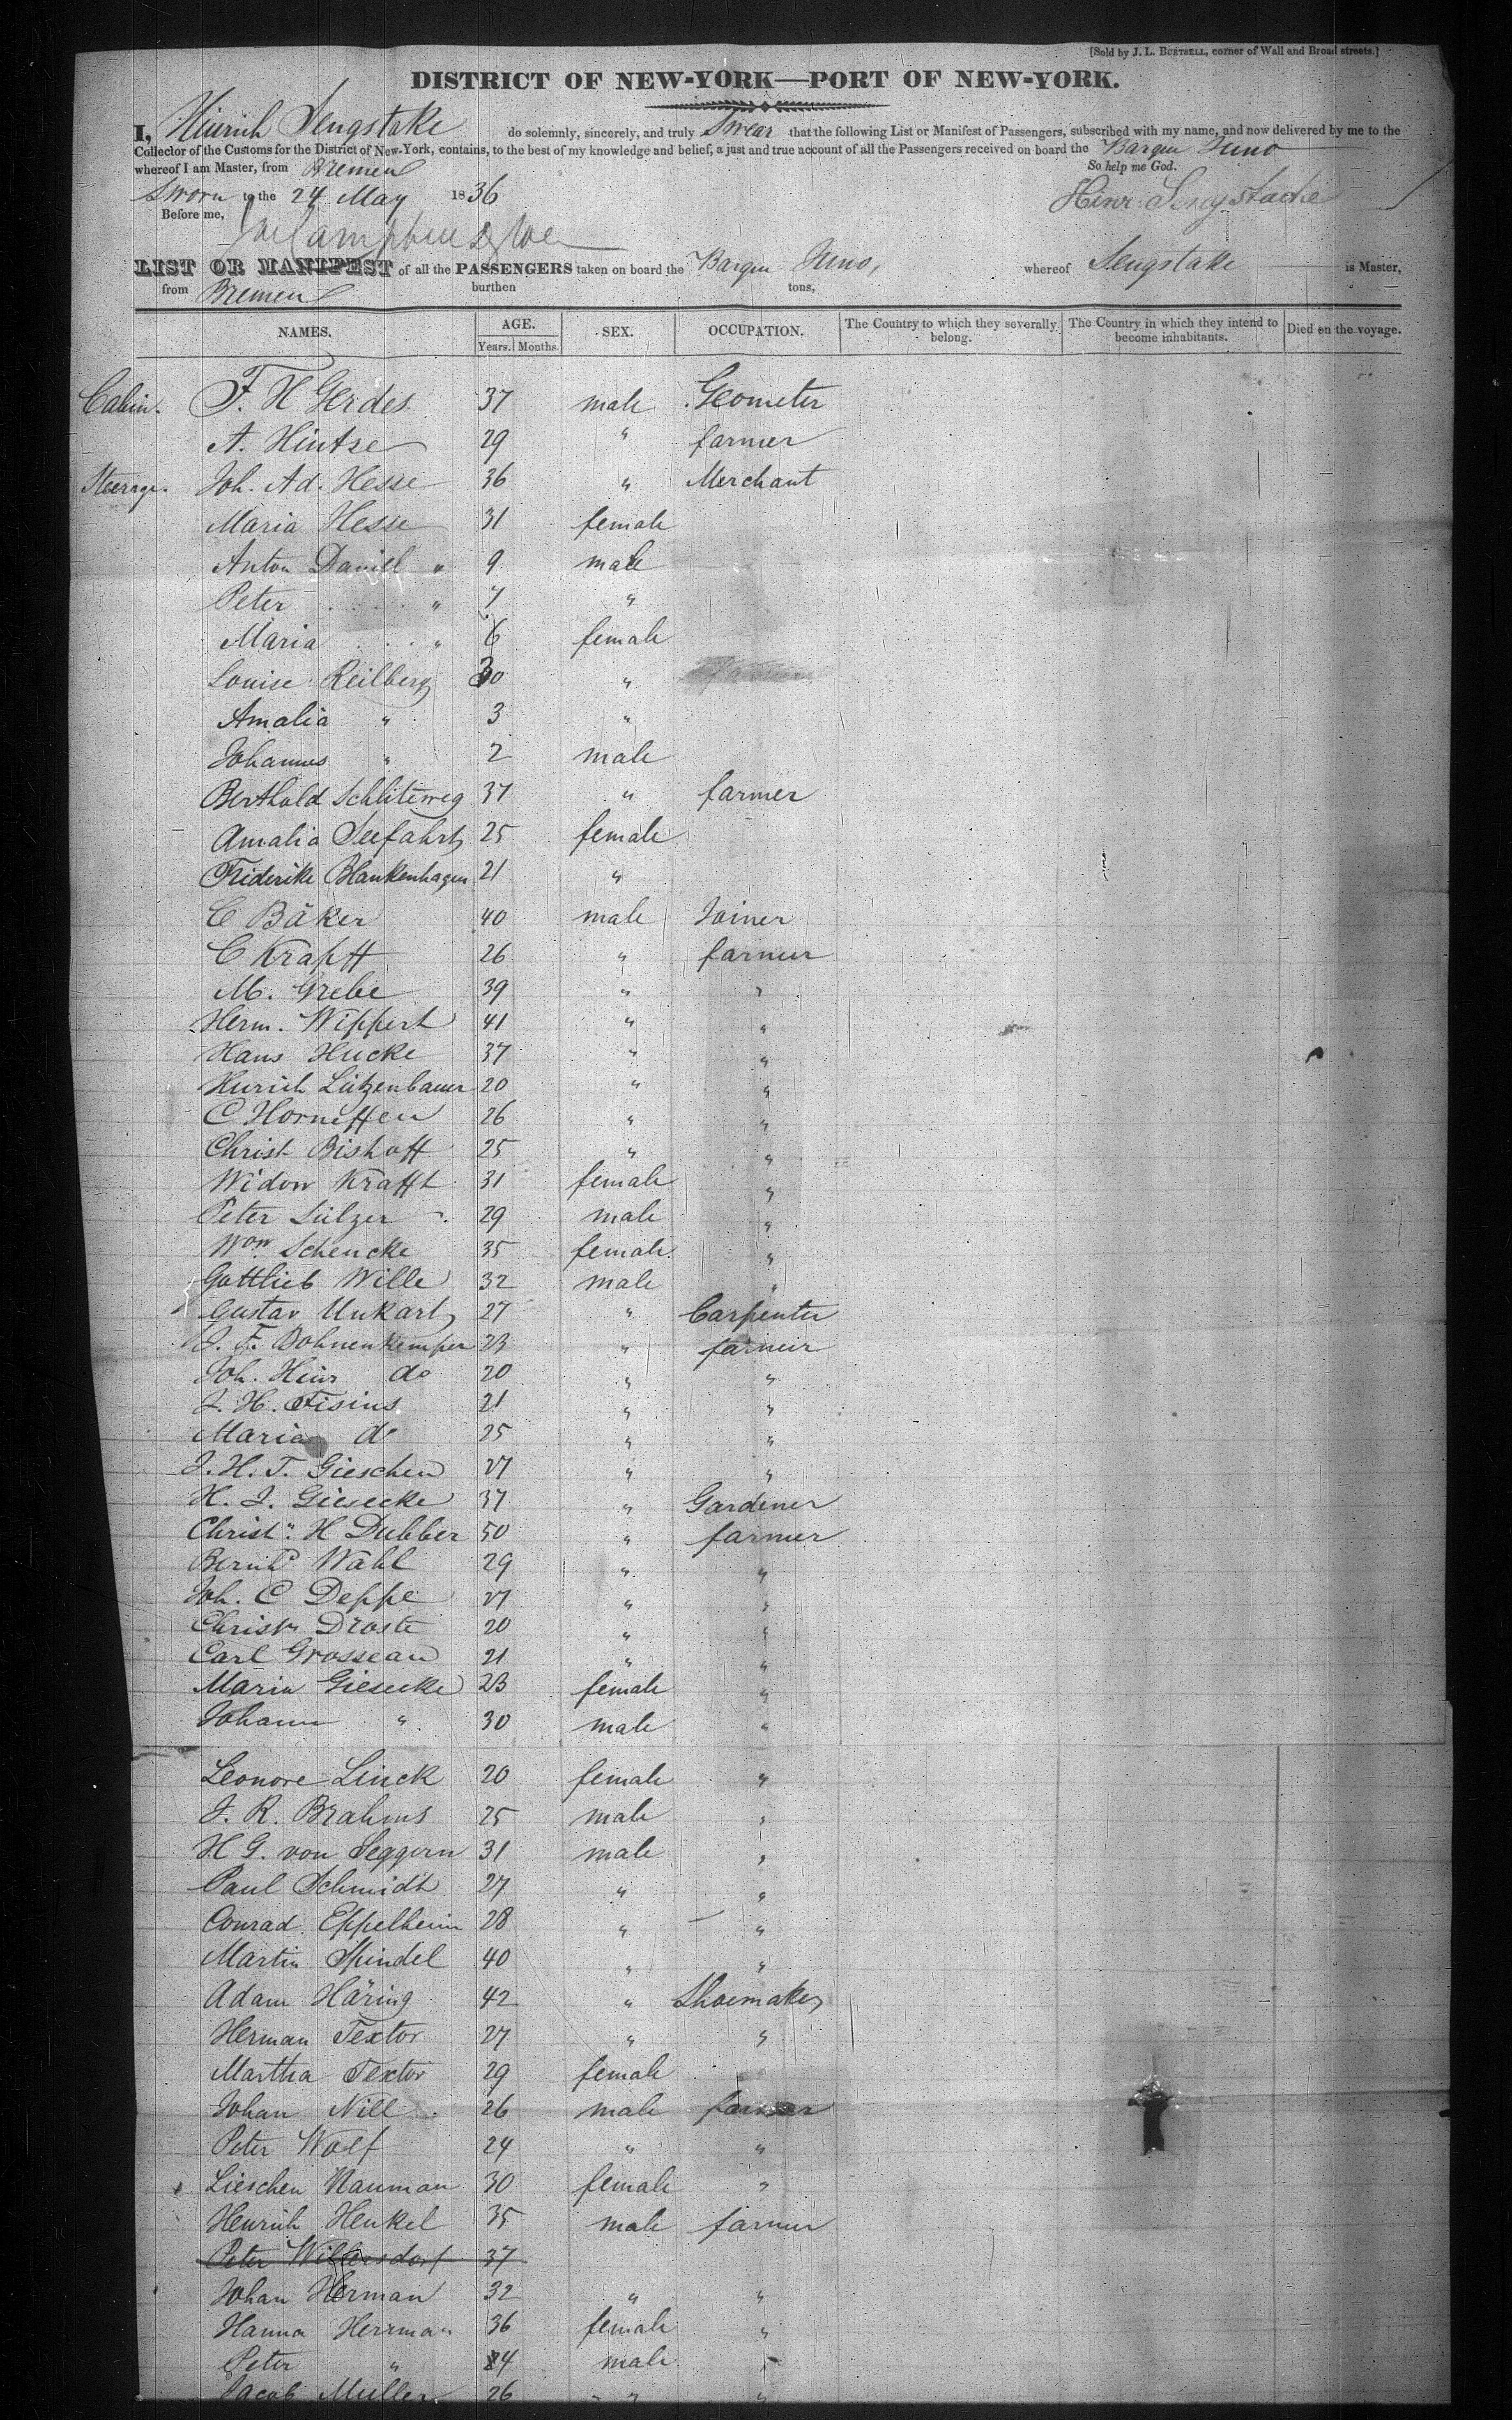 [Sold by J. L. BUETSELL, corner of Wall and Broad streets.]
DISTRICT OF NEW-YORK—PORT OF NEW-YORK.
I, Hinrich Sengstake do solemnly, sincerely, and truly Swear that the following List or Manifest of Passengers, subscribed with my name, and now delivered by me to the
Collector of the Customs for the District of New-York, contains, to the best of my knowledge and belief, a just and true account of all the Passengers received on board the Barque Juno
whereof I am Master, from Bremen So help me God.
Sworn to the 24 May 1836 Hinr. Sengstacke
Before me,
LIST OR MANIFEST of all the PASSENGERS taken on board the Barque Juno, whereof Sengstake is Master,
from Bremen burthen tons,
NAMES. AGE. SEX. OCCUPATION. The Country to which they severally belong. The Country in which they intend to become inhabitants. Died on the voyage.
Years. Months.
Cabin. F. H Gerdes 37 male Geometer
A. Hintze 29 " farmer
Steerage. Joh. Ad. Hesse 36 " Merchant
Maria Hesse 31 female
Anton Daniel " 9 male
Peter " 7 "
Maria " 6 female
Louise Reilberg 30 "
Amalia " 3 "
Johannes " 2 male
Berthold Schliteweg 37 " farmer
Amalia Seefahrt 25 female
Friderike Blankenhagen 21 "
C Bäker 40 male Joiner
C Krapff 26 " farmer
M. Grebe 39 " "
Herm. Wippert 41 " "
Hans Hucke 37 " "
Hinrich Lützenbauer 20 " "
C Horneffen 26 " "
Christ Bishoff 25 " "
Widow Krafft 31 female "
Peter Sülzer 29 male "
Wow Schencke 35 female "
Gottlieb Wille 32 male "
Gustav Unkart 27 " Carpenter
J. F. Bohnenkemper 23 " farmer
Joh. Hinr do 20 " "
J. H. Fisius 21 " "
Maria do 25 " "
J. H. T. Gieschen 27 " "
H. J. Giesecke 37 " Gardener
Christn. H Dubber 50 " farmer
Bernhd Wahl 29 " "
Joh. C Deppe 27 " "
Christn Droste 20 " "
Carl Grossean 21 " "
Maria Giesecke 23 female "
Johann " 30 male "
Leonore Linck 20 female "
J. R. Brahms 25 male "
H G. von Seggern 31 male "
Paul Schmidt 27 " "
Conrad Eppelheim 28 " "
Martin Spindel 40 " "
Adam Häring 42 " Shoemaker
Herman Textor 27 " "
Martha Textor 29 female
Johan Nill 26 male farmer
Peter Wolf 24 " "
Lieschen Nauman 30 female "
Henrich Henkel 35 male farmer
Peter Wilfersdorf 37
Johan Herman 32 " "
Hanna Herrman 36 female "
Peter " 4 male "
Jacob Muller 26 " "